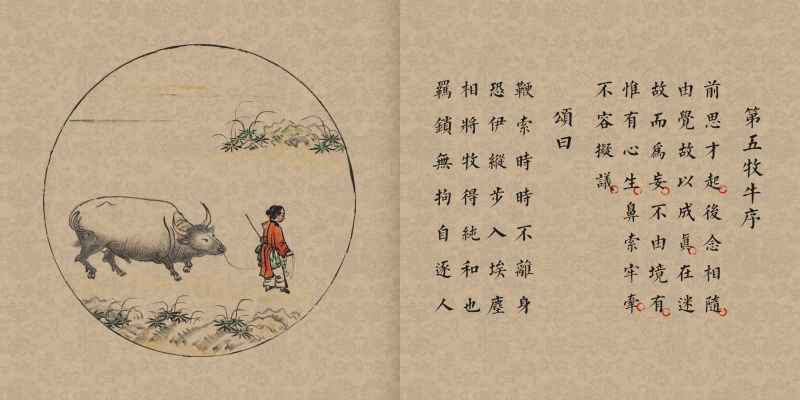 第五牧牛序
前思才起後念相隨
由覺故以成真在迷
故而為妄不由境有
惟有心生鼻索牢牽
不容擬議
頌曰
鞭索時時不離身
恐伊縱步入埃塵
相將牧得純和也
羈鎖無拘自逐人